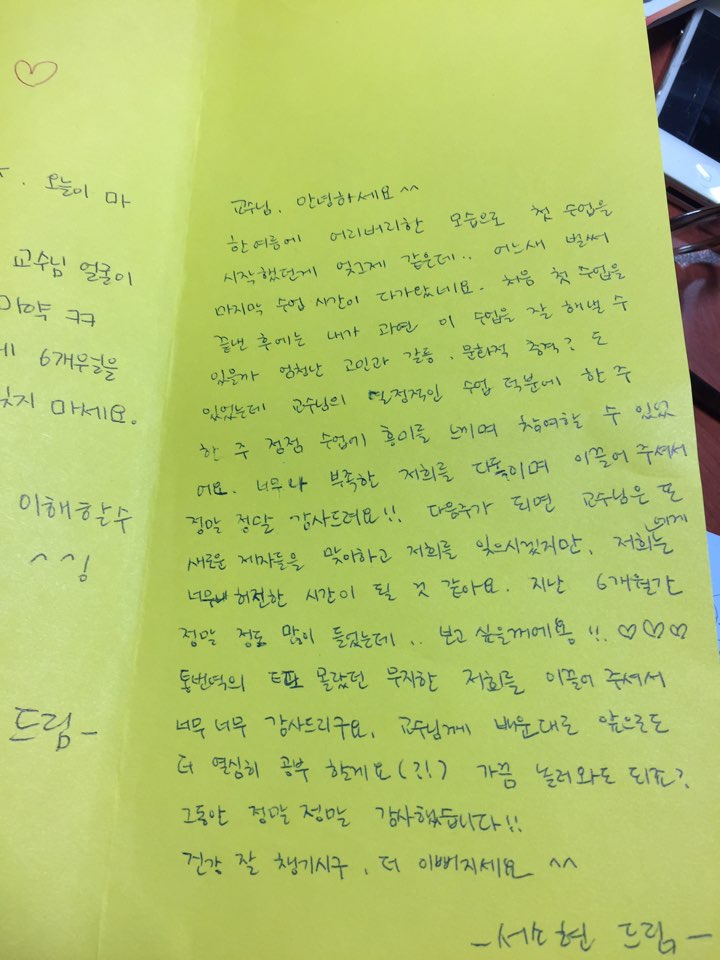 오늘이 마
교수님 얼굴이
6개월을
마세요.
이해한수
^^;
드림-
교수님, 안녕하세요^^
한여름에 어리버리한 모습으로 첫 수업을
시작했던게 엊그제 같은데.. 어느새 벌써
마지막 수업 시간이 다가왔네요. 처음 첫 수업을
끝낸 후에는 내가 과연 이 수업을 잘 해낼 수
있을까 엄청난 고민과 갈등, 문화적 충격? 도
있었는데 교수님의 열정적인 수업 덕분에 한 주
한 주 점점 수업에 흥미를 느끼며 참여할 수 있었
어요. 너무나 부족한 저희를 다독이며 이끌어 주셔서
정말 정말 감사드려요!! 다음주가 되면 교수님은 또
새로운 제자들을 맞아하고 저희를 잊으시겠지만, 저희에게는
너무나 허전한 시간이 될 것 같아요. 지난 6개월간
정말 정도 많이 들었는데.. 보고 싶을꺼에용!! ♡♡♡
통번역의 ㅌ도 몰랐던 무지한 저희를 이끌어 주셔서
너무 너무 감사드리구요, 교수님께 배운대로 앞으로도
더 열심히 공부 할게요(?!) 가끔 놀러와도 되죠?
그동안 정말 정말 감사했습니다!!
건강 잘 챙기시구, 더 이뻐지세요 ^^
-세소현 드림-